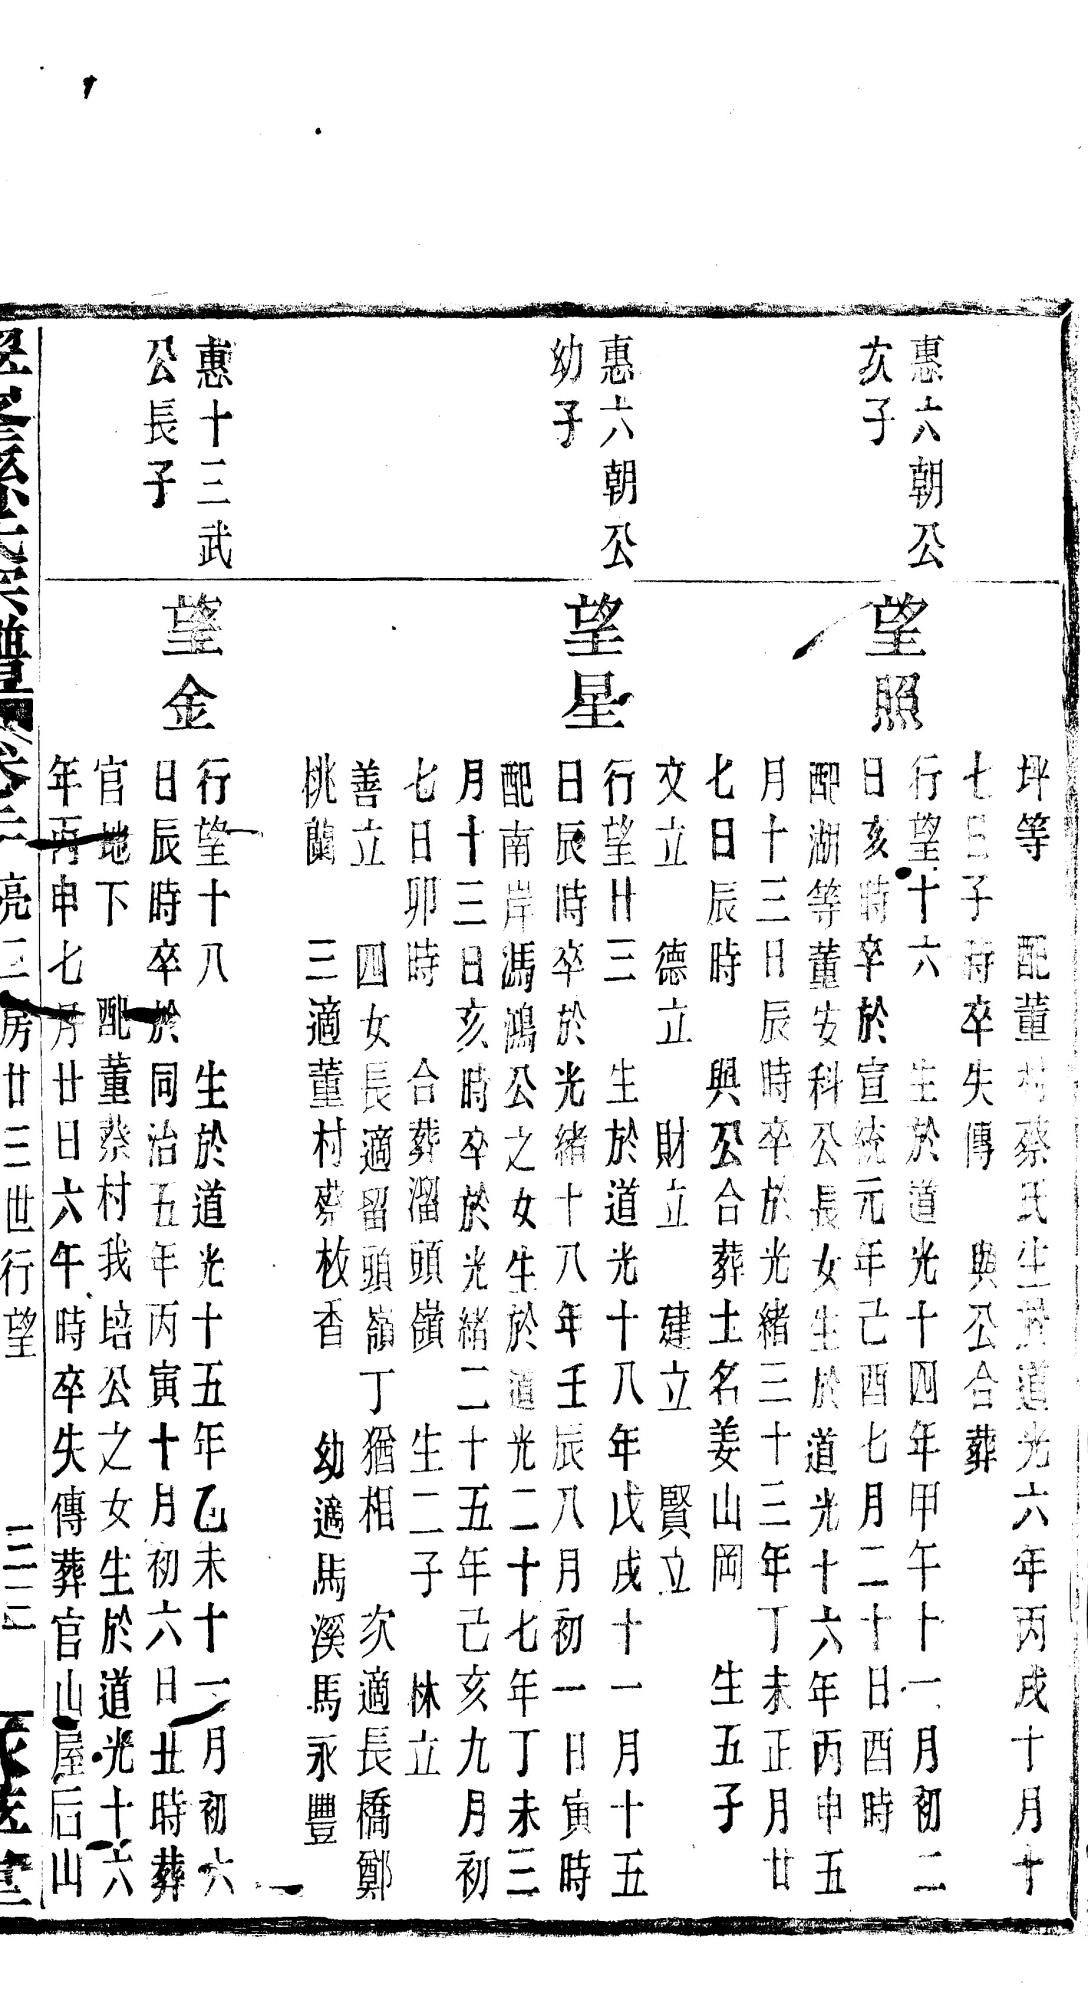 坪等　配董村蔡氏生於道光六年丙戌十月十
七日子時卒失傳　與公合葬
惠六朝公
次子
望照
行望十六　生於道光十四年甲午十一月初二
日亥時卒於宣統元年己酉七月二十日酉時
配湖等董安科公長女生於道光十六年丙申五
月十三日辰時卒於光緒三十三年丁未正月廿
七日辰時　與公合葬土名姜山岡　生五子
文立　德立　財立　建立　賢立
惠六朝公
幼子
望星
行望廿三　生於道光十八年戊戌十一月十五
日辰時卒於光緒十八年壬辰八月初一日寅時
配南岸馮鴻公之女生於道光二十七年丁未三
月十三日亥時卒於光緒二十五年己亥九月初
七日卯時　合葬溜頭嶺　生二子　林立
善立　四女長適留頭嶺丁猶相　次適長橋鄭
桃蘭　三適董村蔡枚香　幼適馬溪馬永豐
惠十三武
公長子
望金
行望十八　生於道光十五年乙未十一月初六
日辰時卒於同治五年丙寅十月初六日丑時葬
官地下　配董蔡村我培公之女生於道光十六
年丙申七月廿日六午時卒失傳葬官山屋后山
孫氏宗譜 卷二 亮三房廿三世行望 三三